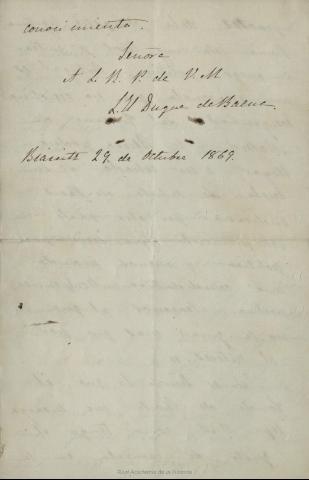 conocimiento.
Señora
A L. R. P. de V. M
Duque de Baena.
Biarritz 29. de Octubre 1869.
Real Academia de la Historia